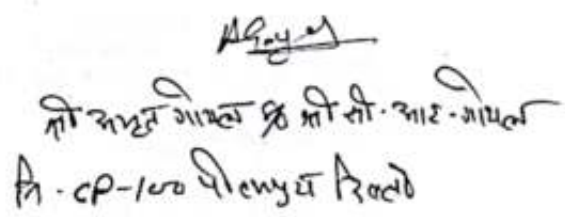 AGoyal
श्री अमृत गोयल S/o श्री सी. आर. गोयल
नि. CP-100 पीतमपुरा दिल्ली